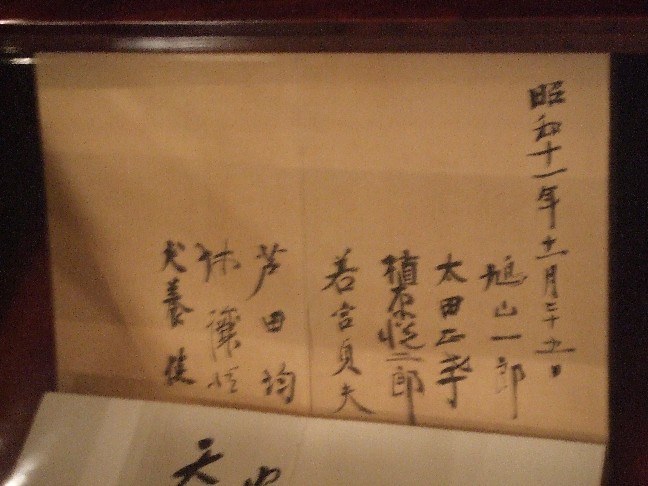 昭和十一年十一月二十九日
鳩山一郎
太田正孝
植原悦二郎
若宮貞夫
芦田均
林譲治
犬養健
天